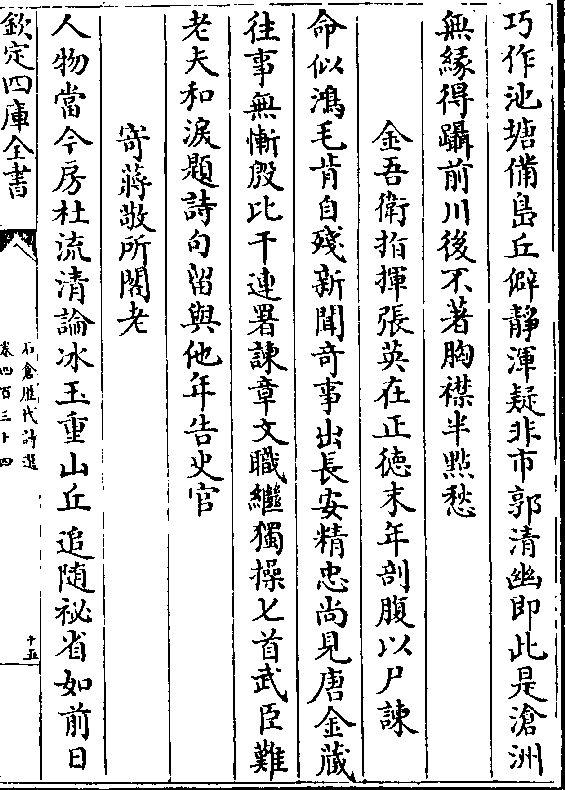 巧作池塘備島丘僻靜渾疑非市郭清幽即此是滄洲
無縁得躡前川後不著胸襟半點愁
金吾衛指揮張英在正德末年剖腹以尸諫
命似鴻毛肯自殘新聞竒事出長安精忠尚見唐金藏
往事無慚殷比干連署諫章文職繼獨操匕首武臣難
老夫和淚題詩句留與他年告史官
寄蔣敬所閣老
人物當今房杜流清論冰玉重山丘追隨祕省如前日
欽定四庫全書
石倉歴代詩選
卷四百三十四
十五